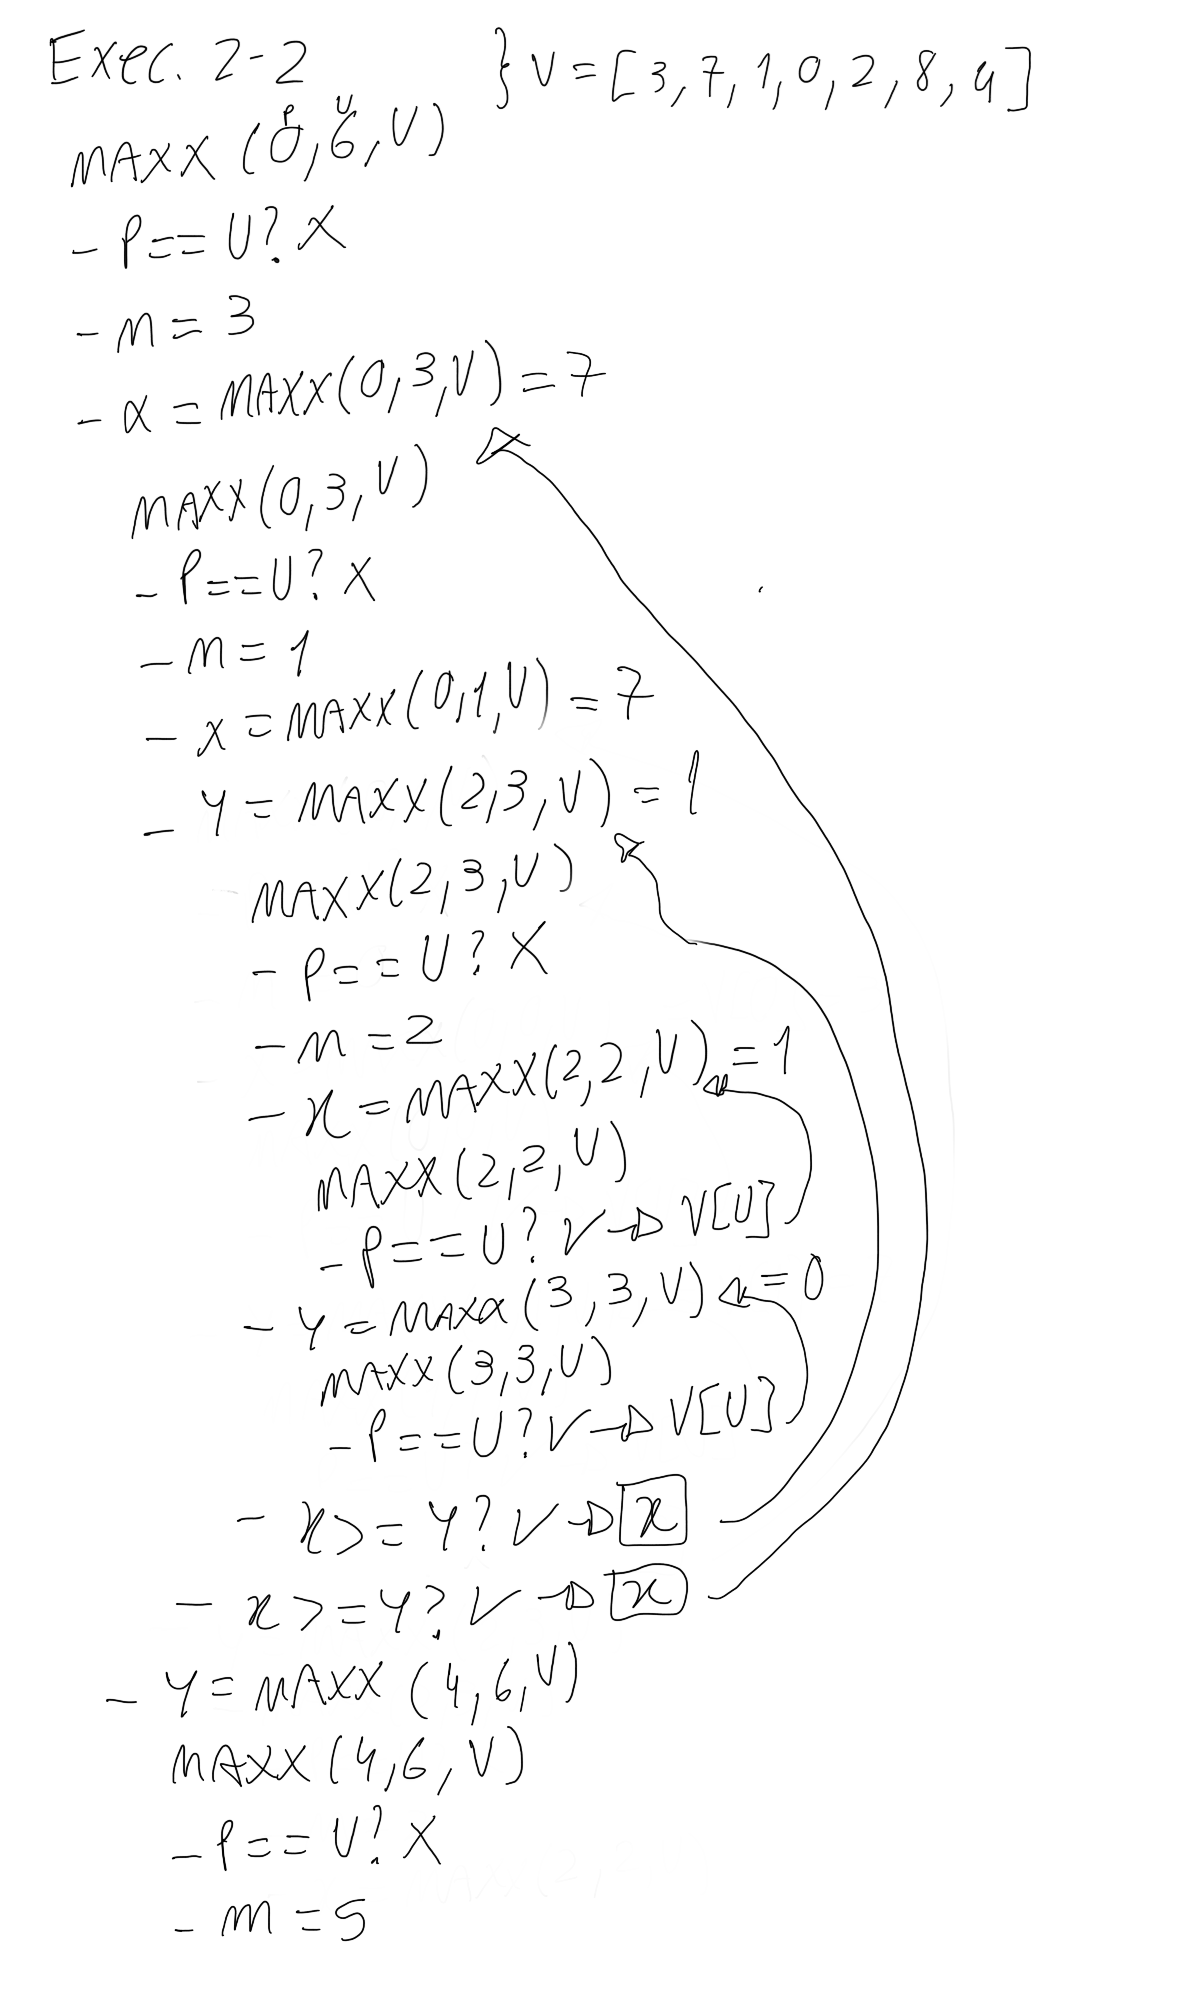 Exec. 2-2 } V = [3,7,1,0,2,8,4]
P U
MAXX (0,6,V)
- P == U? X
- m = 3
- x = MAXX(0,3,V) = 7
MAXX(0,3,V)
- P == U? X
- m = 1
- x = MAXX(0,1,V) = 7
- Y = MAXX(2,3,V) = 1
MAXX(2,3,V)
- P == U? X
- m = 2
- x = MAXX(2,2,V) = 1
MAXX(2,2,V)
- P == U? V → V[U]
- Y = MAXX(3,3,V) = 0
MAXX(3,3,V)
- P == U? V → V[U]
- x >= Y? V → x
- x >= Y? V → x
- Y = MAXX (4,6,V)
MAXX (4,6,V)
- P == U? X
- m = 5